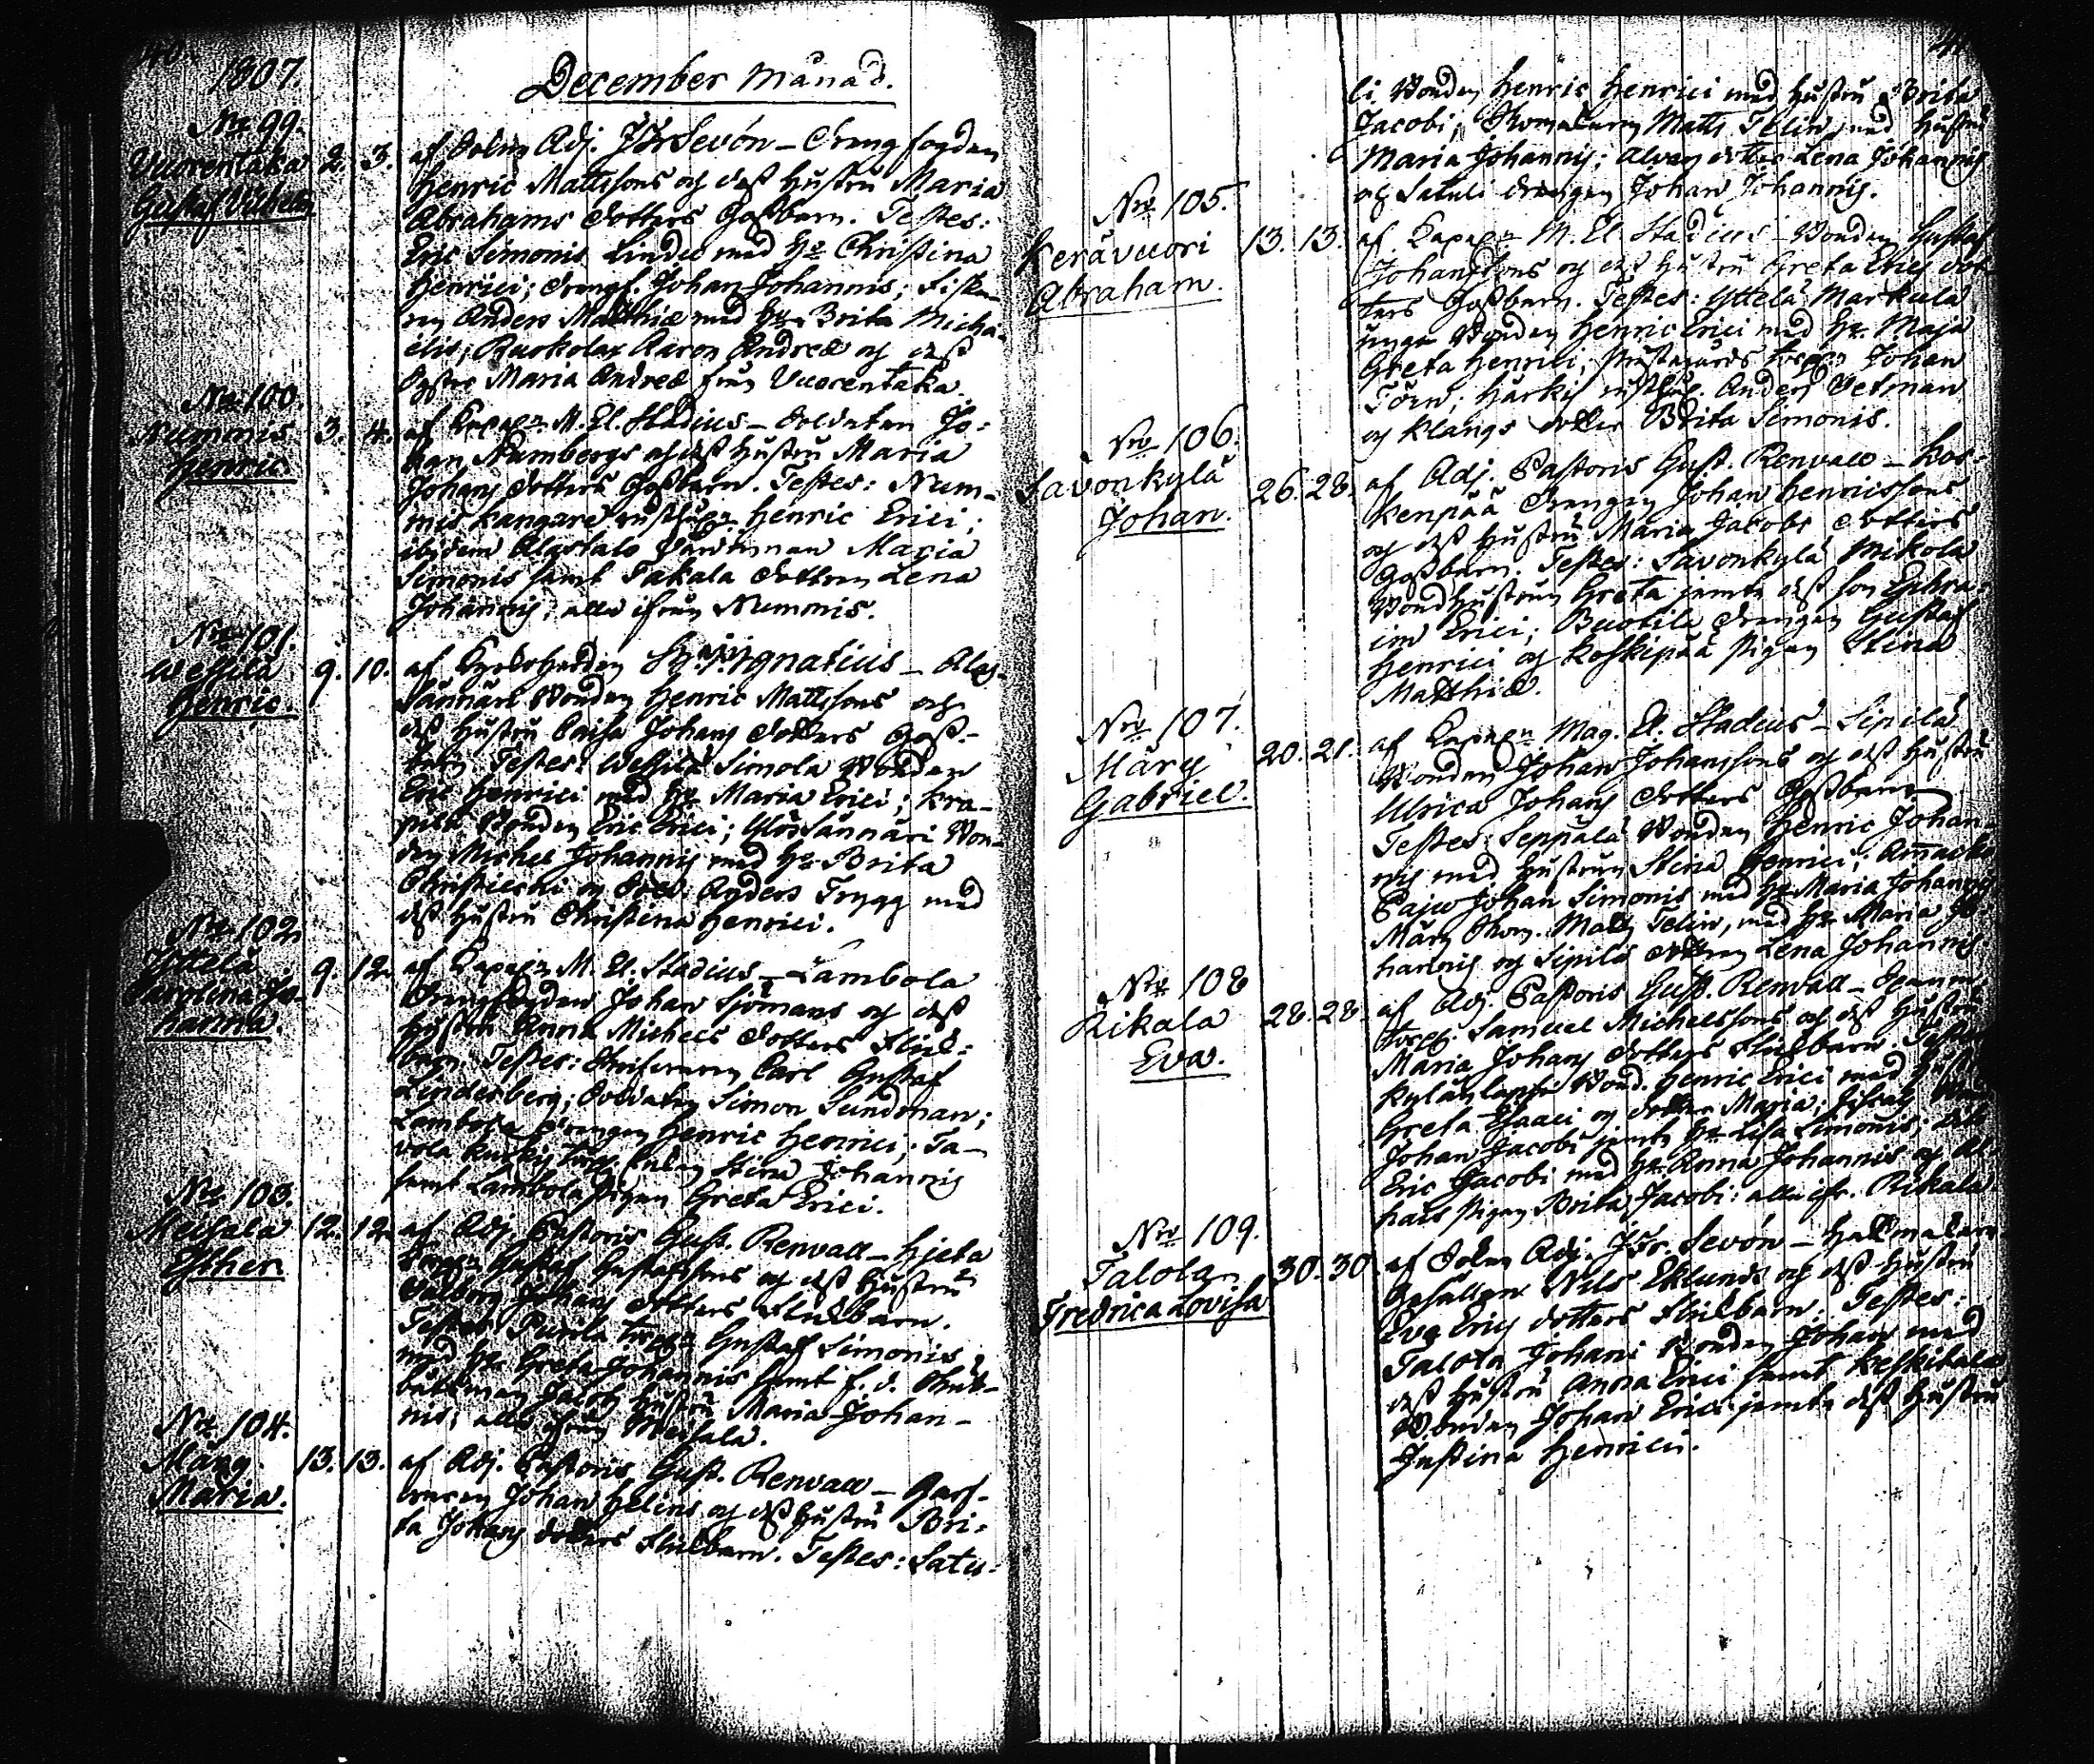 40.
1807.
December Månad.
Nro 99.
Vuorentaka 2. 3.
Gustaf Vilhelm
af Adj. Jör Sevón – Drengfogden
Henric Mattssons och dess hustru Maria
Abrahams dotters Gossbarn. Testes:
Eric Simonis Linder med Hr Christina
Henrici; Drengf. Johan Johannis; Fiska-
ren Anders Matthiæ med Hr Brita Micha-
elis; Ruokolax Aaron Andreæ och dess
Syster Maria Andreæ från Vuorentaka.
Nro 100.
Nummis 3. 4.
Henric
af Capepn M. El. Stadius – Soldaten Jo-
han Numbergs och dess hustru Maria
Johans dotters Gossbarn. Testes: Num-
mis Kangare Henric Erici;
ibidem Alastalo Maria
Simonis samt Takala dottren Lena
Johannis; alla ifrån Nummis.
Nro 101.
Wessilä 9. 10.
Henric.
af Kyrkoherden Ignatius – Alas-
Sännäri Bonden Henric Mattssons och
dess hustru Caisa Johans dotters Goss-
barn. Testes: Wessilä Simola Bonden
Eric Henrici med Hr Maria Erici; Kra-
Bonden Eric Erici; Ylös Sännäri Bon-
den Michel Johannis med Hr Brita
Christierni och Sold. Anders Trygg med
dess hustru Christina Henrici.
Nro 102.
Yttelä 9. 12.
Carolina Jo-
hanna.
af Capepn M. El. Stadius – Lambola
Drengfogden Johan Sjömans och dess
hustru Anna Michels dotters Flick-
barn. Testes: Skrifvaren Carl Gustaf
Lindesberg; Soldaten Simon Sundman;
Lambola Drengen Henric Henrici; Ta-
vola Kurkis Enkan Stina Johannis
samt Lambola Pigan Greta Erici.
Nro 103.
Meisala 12. 12.
Esther
af Adj. Pastoris Gust. Renvall – Hjeta
Gustaf Gustafssons och dess hustru
Valborg Johans dotters Flickbarn.
Testes: Purila Gustaf Simonis
med Hr Greta Johannis samt f. d.
båtsman Jacobs hustru Maria Johan-
nis; alla ifrån Meisala.
Nro 104.
Märy 13. 13.
Maria.
af Adj. Pastoris Gust. Renvall – Garf-
varen Johan Helins och dess hustru Bri-
ta Johans dotters Flickbarn. Testes: Satu-
41
li Bonden Henric Henrici med hustru Brita
Jacobi; Matts Telin, med hustru
Maria Johannis; dotter Lena Johannis
och Satuli drengen Johan Johannis.
Nro 105.
Kerävuori 13. 13.
Abraham.
af Capepn M. El. Stadius – Bonden Gustaf
Johanssons och dess hustru Greta Erics dot-
ters Gossbarn. Testes: Yttelä Markula
unga Bonden Henric Erici med Hr Maja
Greta Henrici; Prustagårds Johan
Törn; Härkis Anders Vetman
och Klangs dotter Brita Simonis.
Nro 106.
Savonkylä 26. 28.
Johan
af Adj. Pastoris Gust. Renvall – Kos-
kenpää Drengen Johan Henrissons
och dess hustru Maria Jacobs dotters
Gossbarn. Testes: Savonkylä Mikola
Bondhustrun Greta jemte dess son Ephra-
im Erici; Buotila Drengen Gustaf
Henrici och Koskipää Pigan Stina
Matthiæ.
Nro 107.
Märy 20. 21.
Gabriel.
af Capepn Mag. El. Stadius – Sipilä
Bonden Johan Johanssons och dess hustru
Ulrica Johans dotters Gossbarn.
Testes: Seppälä Bonden Henric Johan-
nis med hustrun Stina Henrici;
Pajw Johan Simonis med Hr Maria Johannis
Märy Matts Telin, med Hr Maria Jo-
hannis och Sipilä dottren Lena Johannis
Nro 108
Rikala 28. 28.
Eva.
af Adj. Pastoris Gust. Renvall –
Samuel Michelssons och dess hustru
Maria Johans dotters Flickbarn. Testes
Bond. Henric Erici med hustru
Greta Isaaci och dotter Maria;
Johan Jacobi jemte Hr Lisa Simonis;
Eric Jacobi med Hr Anna Johannis och
Pigan Brita Jacobi: alla ifr. Rikala
Nro 109.
Talola 30. 30.
Fredrica Lovisa
af Adj. Jör. Sevón –
Gesällen Nils Eklunds och dess hustru
Eva Erics dotters Flickbarn. Testes:
Talola Johans Bonden Johan med
dess hustru Anna Erici samt Keskitalo
Bonden Johan Erici jemte dess hustru
Justina Henrici.